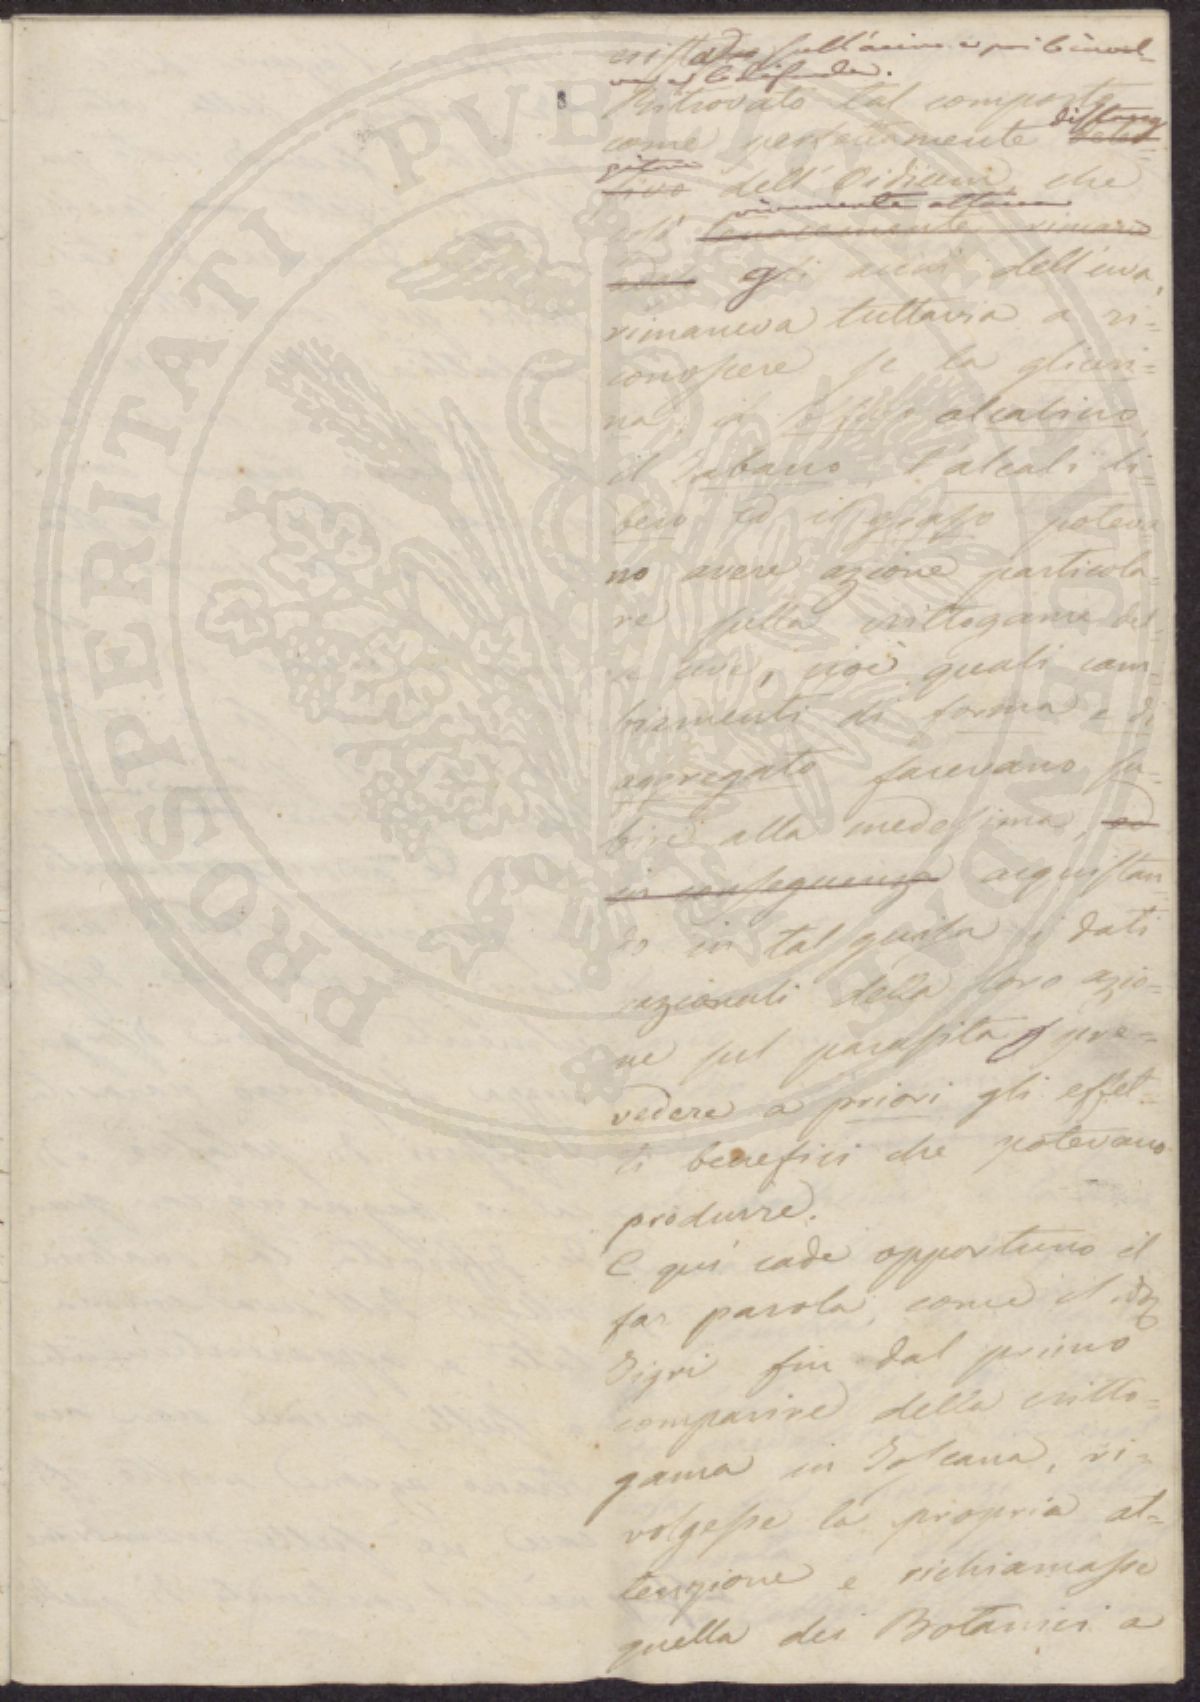 PROSPERITATI PVBLICAE AVGENDAE
sull'acino e poi lo invol-
ve e lo difende.
Ritrovato tal composto
come perfettamente distrug
gitore
tivo dell'Oidium, che
vivamente attacca
così tenacemente riman
gli acini dell'uva,
rimaneva tuttavia a ri=
conoscere se la gliceri=
na, il solfuro alcalino,
il sapone, l'alcali li=
bero ed il grasso poteva
no avere azione particola=
re sulla crittogama del=
le uve, cioè quali cam=
biamenti di forma e di
aggregato facevano su=
bire alla medesima, ed
in conseguenza acquistan
do in tal guisa i dati
razionali della loro azio=
ne sul parassita e pre=
vedere a priori gli effet=
ti benefici che potevano
produrre.
E quì cade opportuno il
far parola, come il
Sigri fin dal primo
comparire della critto=
gama in Toscana, ri=
volgesse la propria at=
tenzione e richiamasse
quella dei Botanici a